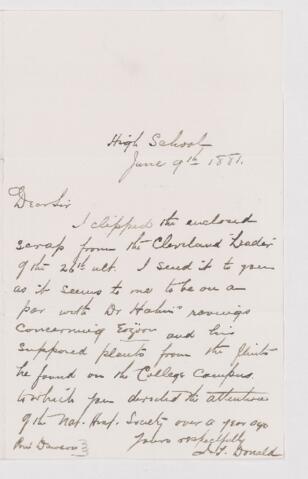 High School
June 9th 1881.
Dear Sir
I clipped the enclosed
scrap from the Cleveland Leader
of the 26th ult. I send it to you
as it seems to me to be on a
par with Dr Hahn's ravings
concerning Eozoon and his
supposed plants from the flints
he found on the College Campus
to which you directed the attention
of the Nat. Hist. Society over a year ago
Yours respectfully
J. T. Donald
Prin Dawson